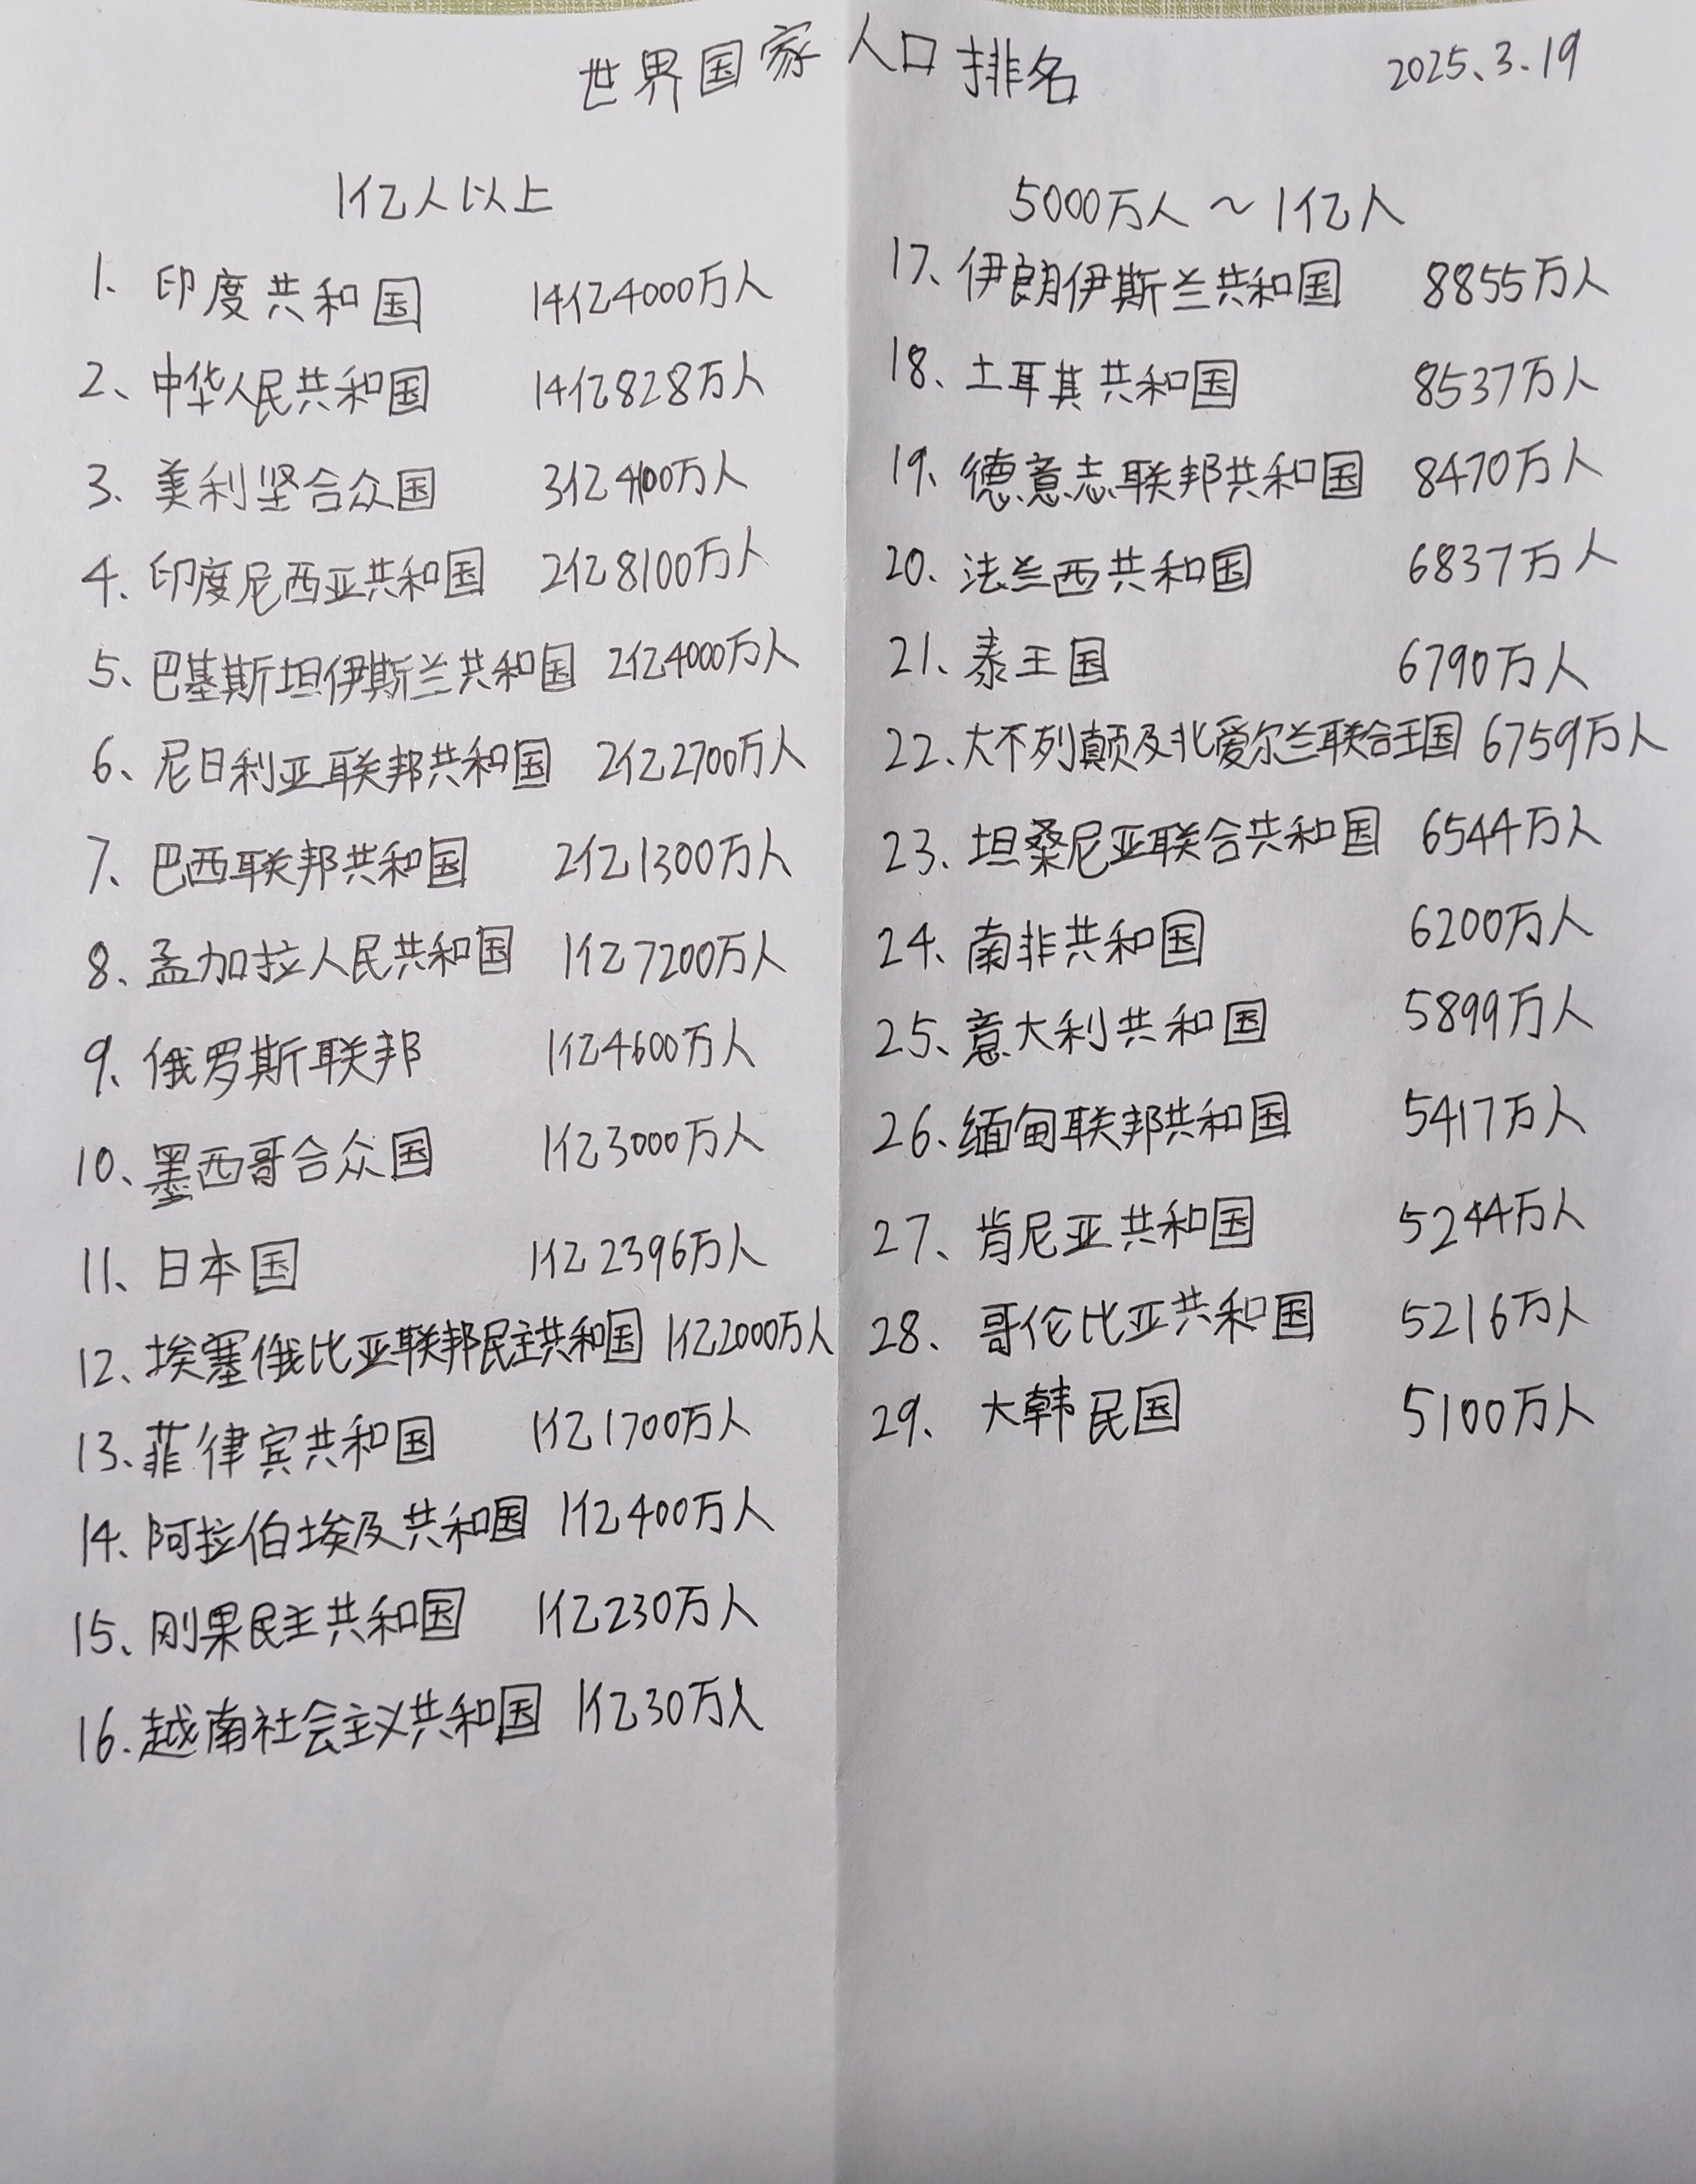 世界国家人口排名 2025.3.19
1亿人以上
1. 印度共和国 14亿4000万人
2、中华人民共和国 14亿828万人
3、美利坚合众国 3亿4100万人
4. 印度尼西亚共和国 2亿8100万人
5、巴基斯坦伊斯兰共和国 2亿4000万人
6、尼日利亚联邦共和国 2亿2700万人
7、巴西联邦共和国 2亿1300万人
8、孟加拉人民共和国 1亿7200万人
9、俄罗斯联邦 1亿4600万人
10、墨西哥合众国 1亿3000万人
11、日本国 1亿2396万人
12、埃塞俄比亚联邦民主共和国 1亿2000万人
13、菲律宾共和国 1亿1700万人
14、阿拉伯埃及共和国 1亿400万人
15、刚果民主共和国 1亿230万人
16.越南社会主义共和国 1亿30万人
5000万人～1亿人
17、伊朗伊斯兰共和国 8855万人
18、土耳其共和国 8537万人
19、德意志联邦共和国 8470万人
20、法兰西共和国 6837万人
21、泰王国 6790万人
22、大不列颠及北爱尔兰联合王国 6759万人
23、坦桑尼亚联合共和国 6544万人
24、南非共和国 6200万人
25、意大利共和国 5899万人
26、缅甸联邦共和国 5417万人
27、肯尼亚共和国 5244万人
28、哥伦比亚共和国 5216万人
29、大韩民国 5100万人